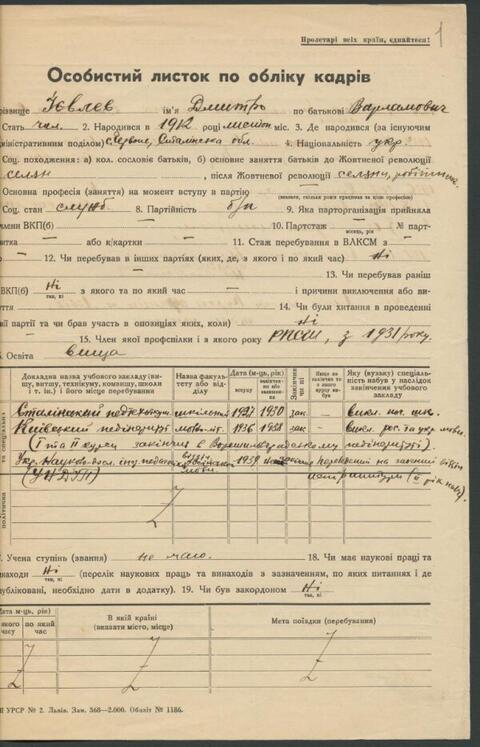 1
Пролетарі всіх країн, єднайтеся!
Особистий листок по обліку кадрів
різвище Ієвлєв ім'я Дмитро по батькові Варламович
Стать чол. 2. Народився в 1912 році міс. 3. Де народився (за існуючим
міністративним поділом) Сталінська обл. 4. Національність укр.
Соц. походження: а) кол. сословіє батьків, б) основне заняття батьків до Жовтневої революції
селян , після Жовтневої революції селяни, робітник
Основна професія (заняття) на момент вступу в партію —
(вказати, скільки років працював за цією професією)
Соц. стан служб. 8. Партійність б/п 9. Яка парторганізація прийняла
члени ВКП(б) — 10. Партстаж — № парт-
місяць, рік
витка — або к/картки — 11. Стаж перебування в ВЛКСМ з —
— 12. Чи перебував в інших партіях (яких, де, з якого і по який час) Ні
13. Чи перебував раніш
ВКП(б) Ні з якого та по який час — і причини виключення або ви-
так, ні
уття — 14. Чи були хитання в проведенні
ії партії та чи брав участь в опозиціях яких, коли) Ні
15. Член якої профспілки і з якого року з 1931 року.
Освіта вища
Докладна назва учбового закладу (ви-
шу, витшу, технікуму, комвишу, школи
і т. ін.) і його місце перебування
Назва факуль-
тету або від-
ділу
Дата (м-ць, рік)
вступу
закінчен-
ня або
Закінчив
чи ні
Якщо не
закінчив то з
якого курсу
вибув
Яку (вузьку) спеціаль-
ність набув у наслідок
закінчення закладу
Сталінський педтехнікум шкільний 1927 1930 зак. — викл. поч. шк.
Київський педінститут мовн.-літ. 1936 1938 зак. — викл. рос. та укр. мови.
(І та ІІ курси закінчив в Ворошиловградському педінституті).
Укр. Науково-досл. інститут педагогіки 1939
(УНДІП)
та спеціальна
політична
Учена ступінь (звання) не маю. 18. Чи має наукові праці та
находи Ні (перелік наукових праць та винаходів з зазначенням, по яких питаннях і де
так, ні
публіковані, необхідно дати в додатку). 19. Чи був закордоном Ні
так, ні
Дата м-ць, рік)
якого
часу
по який
час
В якій країні
(вказати місто, місце)
Мета поїздки (перебування)
УРСР № 2. Львів. Зам. 368—2.000. Обліт № 1186.